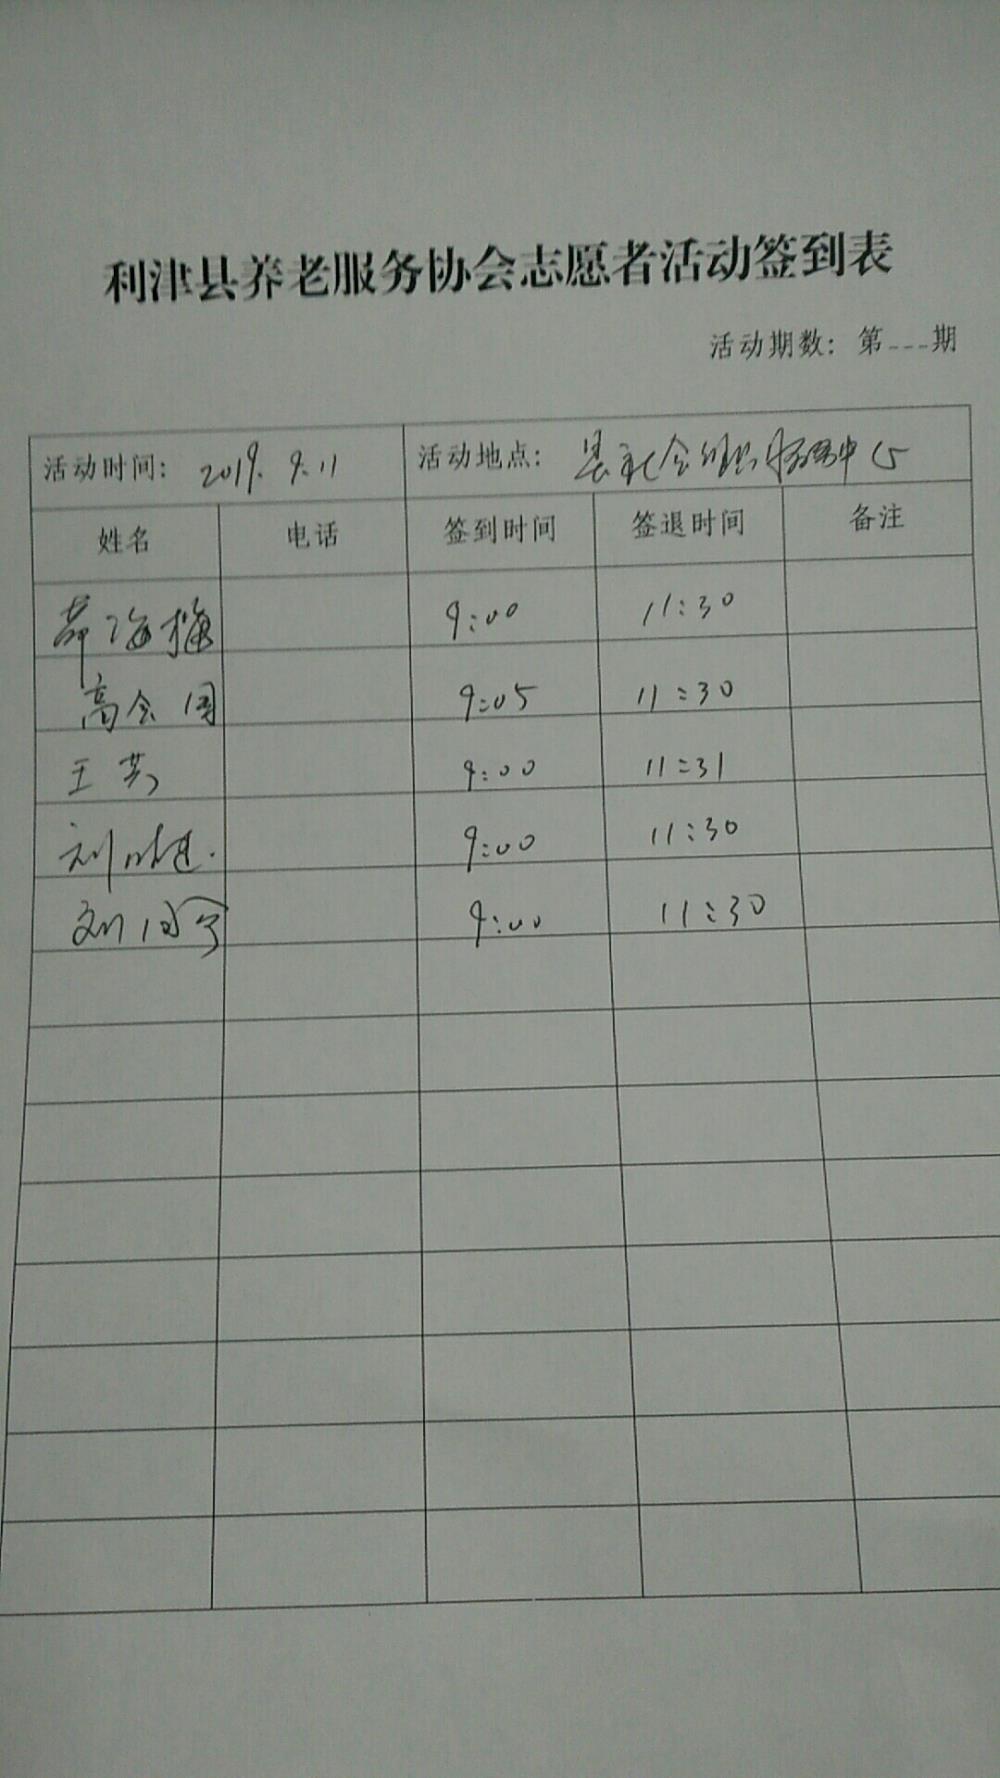 利津县养老服务协会志愿者活动签到表
活动期数：第---期
活动时间：2019.9.11 活动地点：县社会组织服务中心
姓名 电话 签到时间 签退时间 备注
薛海梅 9:00 11:30
高会国 9:05 11:30
王芳 9:00 11:31
刘 9:00 11:30
刘 9:00 11:30